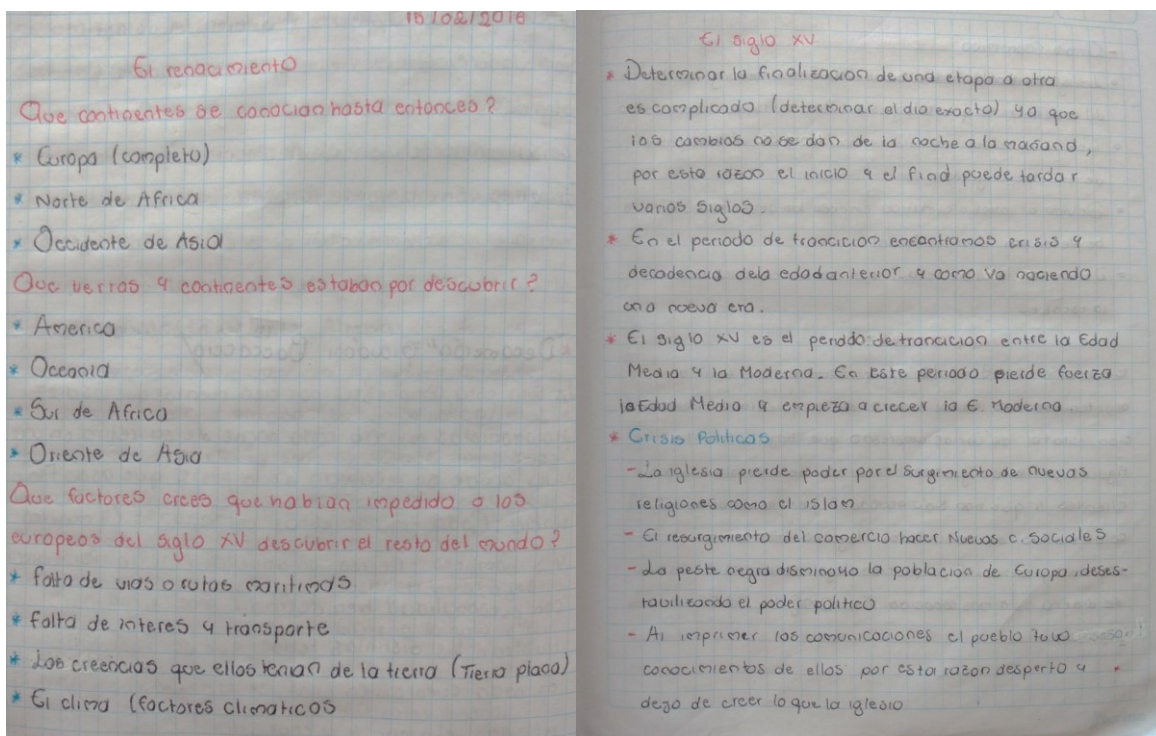 18/02/2016
El renacimiento
Que continentes se conocian hasta entonces?
* Europa (completo)
* Norte de Africa
* Occidente de Asia
Que tierras y continentes estaban por descubrir?
* America
* Oceania
* Sur de Africa
* Oriente de Asia
Que factores crees que habian impedido a los
europeos del siglo XV descubrir el resto del mundo?
* falta de vias o rutas maritimas
* falta de interes y transporte
* Los creencias que ellos tenian de la tierra (Tierra plana)
* El clima (factores climaticos
El siglo XV
* Determinar la finalizacion de una etapa a otra
es complicado (determinar el dia exacto) ya que
los cambios no se dan de la noche a la mañana,
por esta razon el inicio y el final puede tardar
varios siglos.
* En el periodo de trancicion encontramos crisis y
decadencia dela edad anterior y como va naciendo
una nueva era.
* El siglo XV es el periodo de trancicion entre la Edad
Media y la Moderna. En este periodo pierde fuerza
la Edad Media y empieza a crecer la E. Moderna
* Crisis Politicas
- La iglesia pierde poder por el surgimiento de nuevas
religiones como el islam
- El resurgimiento del comercio hacer Nuevas c. Sociales
- La peste negra disminuyo la poblacion de Europa, deses-
tavilizando el poder politico
- Al imprimer las comunicaciones el pueblo tuvo
conocimientos de ellos por esta razon desperto y
dejo de creer lo que la iglesia